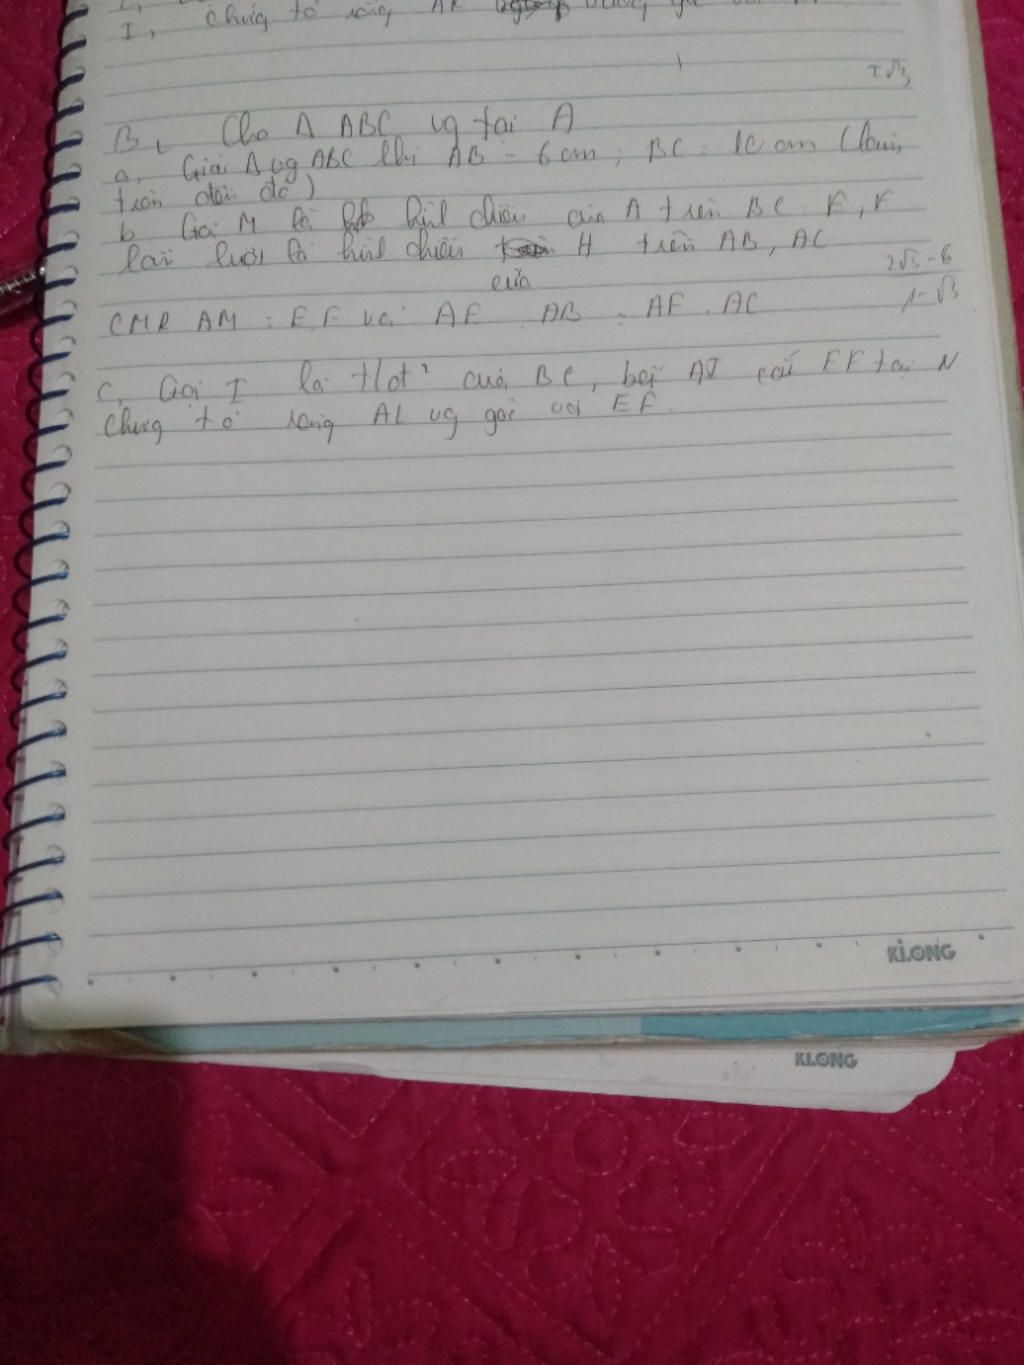 I, chứng tỏ rằng AK vuông
2√3
B, Cho Δ ABC vg tại A
a, Giải Δ vg ABC khi AB = 6 cm; BC = 10 cm (làm
tròn đến độ)
b Gọi M là hình chiếu của A trên BC. E, F
lần lượt là hình chiếu H trên AB, AC
của
2√3 - 6
1-√3
CMR AM = EF và AE . AB = AF . AC
C, Gọi I là t/đ² của BC, biết AI cắt EF tại N
Chứng tỏ rằng AI vg góc với EF.
KLONG
KLONG